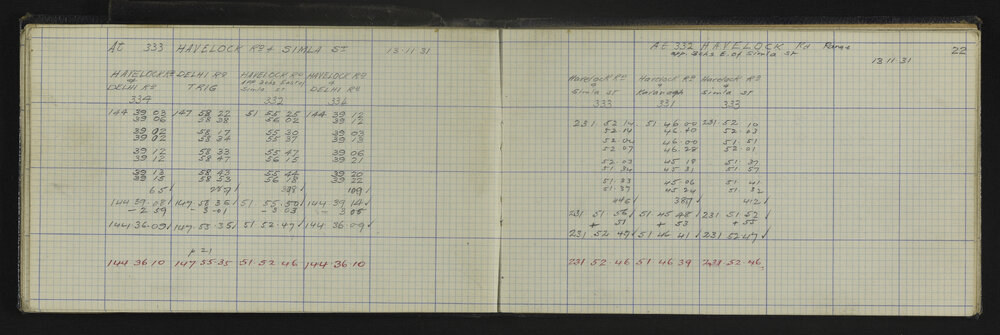 At 333 HAVELOCK RD & SIMLA ST 13.11.31
HAVELOCK RD DELHI RD HAVELOCK RD HAVELOCK RD
& DELHI RD TRIG Simla St & DELHI RD
334 332 334
144 39 03 147 58 22 51 55 25 144 39 12
39 06 58 38 56 02 39 12
39 02 58 17 55 30 39 03
39 02 53 34 55 37 39 13
39 12 58 33 55 47 39 06
39 12 58 47 56 15 39 21
39 13 58 43 55 44 39 20
39 15 58 53 56 18 39 22
65 287 398 109
144 39.08 147 58 36 51 55.50 144 39 14
- 2 59 - 3 01 - 3 03 - 3 05
144 36.09 147 55.35 51 52.47 144 36.09
p 21
144 36.10 147 55.35 51.52.46 144 36.10
At 332 HAVELOCK Rd 22
opp. 20hs E. of Simla St
13 11 31
Havelock RD Havelock RD Havelock RD
& Simla St & Kavanagh & Simla St
333 331 333
231 52 14 51 46 00 231 52 10
52 14 46 40 52 03
52 04 46 00 51 51
52 07 46 28 52 01
52 03 45 18 51 37
51 34 45 31 51 57
51 23 45 06 51 41
51 37 45 24 51 32
446 387 412
231 51 56 51 45 48 231 51 52
+ 51 + 53 + 55
231 52 47 51 46 41 231 52 47
231 52.46 51 46 39 231.52.46